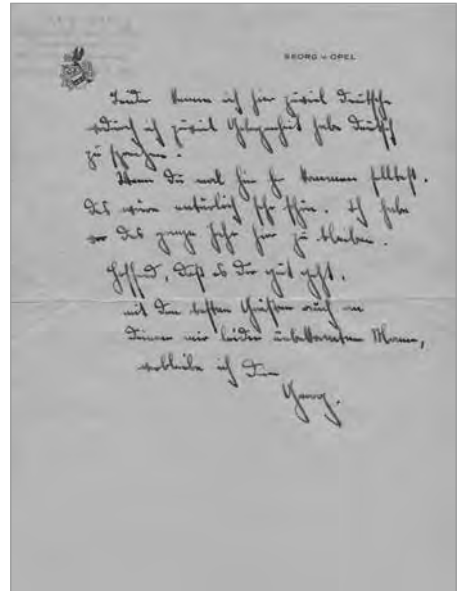 GEORG v. OPEL
Leider kenne ich hier zuviel Deutsche
wodurch ich zuviel Gelegenheit habe Deutsch
zu sprechen.
Wenn Du mal hier her kommen solltest.
Das wäre natürlich sehr schön. Ich habe
vor das ganze Jahr hier zu bleiben.
Hoffend, daß es Dir gut geht.
mit den besten Grüßen auch an
Deinen mir leider unbekannten Mann,
verbleibe ich Dein
Georg.